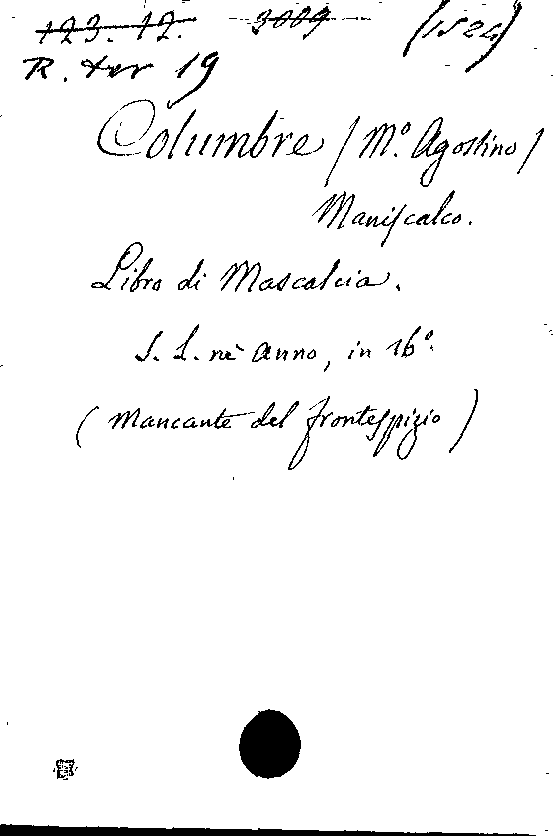 123. 12. 3009 (1524)
R. ter 19
Columbre / M.º Agostino /
Maniscalco.
Libro di Mascalcia.
S. L. nè anno, in 16º.
( Mancante del frontespizio )